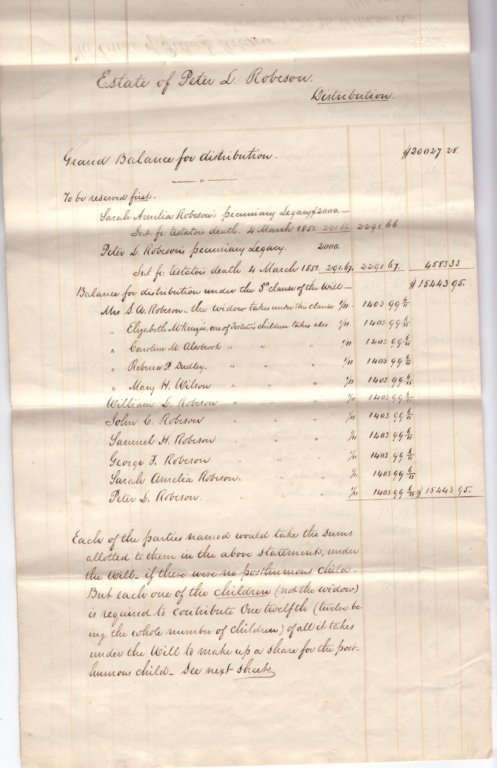 Estate of Peter L. Robeson.
Distribution.
Grand Balance for distribution. $20027 28
To be reserved first.
Sarah Amelia Robeson's pecuniary Legacy $2000.—
Int fr. testator's death 4 March 1851. 291.66 2291 66
Peter L. Robeson's pecuniary Legacy. 2000.
Int fr. testators death 4 March 1851. 291.67. 2291.67 4583 33
Balance for distribution under the clause of the Will— $15443 95.
Mrs S. A. Robeson—the widow takes under this clause 1/11 1403 99 6/11
" Elizabeth McKenzie, one of Testator's children takes also 1/11 1403 99 6/11
" Caroline M. " " 1/11 1403 99 6/11
" Rebecca F. Dudley " " 1/11 1403 99 6/11
" Mary H. Wilson " " " 1/11 1403 99 6/11
William L. Robeson " " 1/11 1403 99 6/11
John C. Robeson " " " 1/11 1403 99 6/11
Samuel H. Robeson " " " 1/11 1403 99 6/11
George F. Robeson " " " 1/11 1403 99 6/11
Sarah Amelia Robeson. " " " 1/11 1403 99 6/11
Peter L. Robeson. " " " 1/11 1403 99 6/11 $15443 95.
Each of the parties named would take the sums
allotted to them in the above statements, under
the Will— if there were no posthumous child—
But each one of the children (not the widow)
is required to contribute One twelfth (twelve be
ing the whole number of children) of all it takes
under the Will to make up a share for the post-
humous child— See next sheet